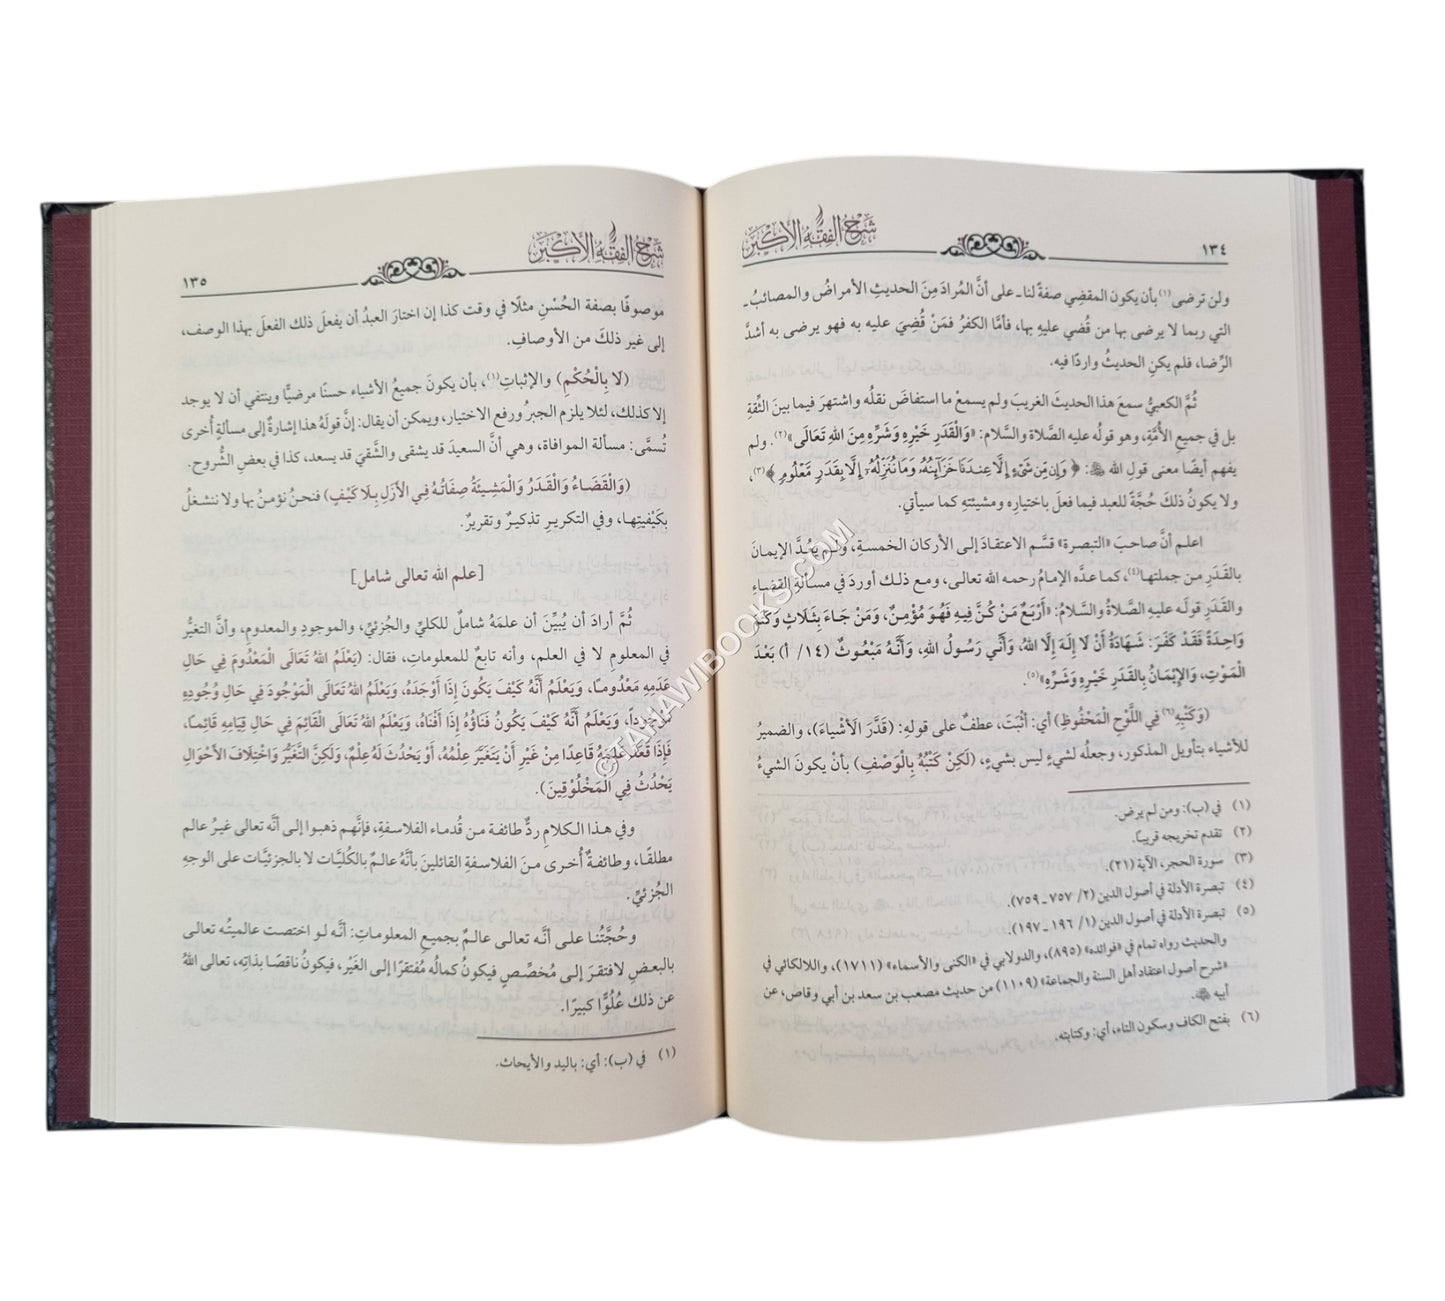 شَرْحُ الفِقْهِ الأَكْبَرِ
١٣٤
ولن ترضى(١) بأن يكون المقضِي صفةً لنا ـ على أنَّ المُرادَ مِنَ الحديثِ الأمراضُ والمصائبُ ـ
التي ربما لا يرضى بها من قُضي عليهِ بها، فأمَّا الكفرُ فمَنْ قُضِيَ عليه به فهو يرضى به أشدَّ
الرِّضا، فلم يكنِ الحديثُ واردًا فيه.
ثُمَّ الكعبيُّ سمعَ هذا الحديثَ الغريبَ ولم يسمعْ ما استفاضَ نقلُه واشتهرَ فيما بينَ الثِّقةِ
بل في جميعِ الأُمَّةِ، وهو قولُه عليه الصَّلاة والسَّلام: «وَالْقَدَرِ خَيْرِهِ وَشَرِّهِ مِنَ اللهِ تَعَالَى»(٢). ولم
يفهم أيضًا معنى قولِ الله ﷻ: ﴿وَإِن مِّن شَىْءٍ إِلَّا عِندَنَا خَزَآئِنُهُۥ وَمَا نُنَزِّلُهُۥٓ إِلَّا بِقَدَرٍ مَّعْلُومٍ﴾(٣)،
ولا يكونُ ذلكَ حُجَّةً للعبد فيما فعلَ باختيارِه ومشيئتهِ كما سيأتي.
اعلم أنَّ صاحبَ «التبصرة» قسَّم الاعتقادَ إلى الأركان الخمسةِ، ولم يَعُدَّ الإيمانَ
بالقَدَرِ من جملتها(٤)، كما عدَّه الإمامُ رحمه الله تعالى، ومع ذلك أوردَ في مسألةِ القضاءِ
والقَدَرِ قولَه عليهِ الصَّلاةُ والسَّلامُ: «أَرْبَعٌ مَنْ كُنَّ فِيهِ فَهُوَ مُؤْمِنٌ، وَمَنْ جَاءَ بِثَلَاثٍ وَكَتَمَ
وَاحِدَةً فَقَدْ كَفَرَ: شَهَادَةُ أَنْ لَا إِلَهَ إِلَّا اللهُ، وَأَنِّي رَسُولُ اللهِ، وَأَنَّهُ مَبْعُوثٌ (١٤/ أ) بَعْدَ
الْمَوْتِ، وَالإِيْمَانُ بِالقَدَرِ خَيْرِهِ وَشَرِّهِ»(٥).
(وَكَتْبِهِ(٦) فِي اللَّوْحِ الْمَحْفُوظِ) أي: أثْبَتَ، عطفٌ على قولهِ: (قَدَّرَ الْأَشْيَاءَ)، والضميرُ
للأشياء بتأويل المذكور، وجعلُه لشيءٍ ليس بشيءٍ، (لَكِنْ كَتَبُهُ بِالْوَصْفِ) بأن يكونَ الشيءُ
(١) في (ب): ومن لم يرض.
(٢) تقدم تخريجه قريبًا.
(٣) سورة الحجر، الآية (٢١).
(٤) تبصرة الأدلة في أصول الدين (٢/ ٧٥٧ ـ ٧٥٩).
(٥) تبصرة الأدلة في أصول الدين (١/ ١٩٦ ـ ١٩٧).
والحديث رواه تمام في «فوائده» (٨٩٥)، والدولابي في «الكنى والأسماء» (١٧١١)، واللالكائي في
«شرح أصول اعتقاد أهل السنة والجماعة» (١١٠٩) من حديث مصعب بن سعد بن أبي وقاص، عن
أبيه
(٦) بفتح الكاف وسكون التاء، أي: وكتابته.
شَرْحُ الفِقْهِ الأَكْبَرِ
١٣٥
موصوفًا بصفة الحُسْنِ مثلًا في وقت كذا إن اختارَ العبدُ أن يفعلَ ذلك الفعلَ بهذا الوصف،
إلى غير ذلكَ من الأوصافِ.
(لَا بِالْحُكْمِ) والإثباتِ(١)، بأن يكونَ جميعُ الأشياء حسنًا مرضيًّا وينتفي أن لا يوجد
إلا كذلك، لئلا يلزم الجبرُ ورفع الاختيار، ويمكن أن يقال: إنَّ قولَهُ هذا إشارةٌ إلى مسألةٍ أُخرى
تُسمَّى: مسألة الموافاة، وهي أنَّ السعيدَ قد يشقى والشَّقيَ قد يسعد، كذا في بعضِ الشُّروح.
(وَالْقَضَاءُ وَالْقَدَرُ وَالْمَشِيئَةُ صِفَاتُهُ فِي الأَزَلِ بِلَا كَيْفٍ) فنحنُ نؤمنُ بها ولا ننشغلُ
بكَيْفيتِها، وفي التكريرِ تذكيرٌ وتقريرٌ.
[علم الله تعالى شامل]
ثُمَّ أرادَ أن يُبيِّنَ أن علمَهُ شاملٌ للكليِّ والجُزئيِّ، والموجودِ والمعدومِ، وأنَّ التغيُّر
في المعلومِ لا في العلم، وأنه تابعٌ للمعلومات، فقال: (يَعْلَمُ اللهُ تَعَالَى الْمَعْدُومَ فِي حَالِ
عَدَمِهِ مَعْدُومًا، وَيَعْلَمُ أَنَّهُ كَيْفَ يَكُونُ إِذَا أَوْجَدَهُ، وَيَعْلَمُ اللهُ تَعَالَى الْمَوْجُودَ فِي حَالِ وُجُودِهِ
مَوْجُوداً، وَيَعْلَمُ أَنَّهُ كَيْفَ يَكُونُ فَنَاؤُهُ إِذَا أَفْنَاهُ، وَيَعْلَمُ اللهُ تَعَالَى الْقَائِمَ فِي حَالِ قِيَامِهِ قَائِمًا،
فَإِذَا قَعَدَ عَلِمَهُ قَاعِدًا مِنْ غَيْرِ أَنْ يَتَغَيَّرَ عِلْمُهُ، أَوْ يَحْدُثَ لَهُ عِلْمٌ، وَلَكِنَّ التَّغَيُّرَ وَاخْتِلَافَ الأَحْوَالِ
يَحْدُثُ فِي الْمَخْلُوْقِينَ).
وفي هذا الكلامِ ردٌّ طائفة من قُدماء الفلاسفةِ، فإنَّهم ذهبوا إلى أنَّه تعالى غيرُ عالم
مطلقًا، وطائفةٌ أُخرى منَ الفلاسفةِ القائلينَ بأنَّهُ عالمٌ بالكُليَّات لا بالجزئيَّات على الوجهِ
الجُزئيِّ.
وحُجَّتُنا على أنَّه تعالى عالمٌ بجميعِ المعلوماتِ: أنَّه لو اختصت عالميتُه تعالى
بالبعضِ لافتقرَ إلى مُخصِّصٍ فيكونُ كمالُه مُفتقرًا إلى الغَيْر، فيكونُ ناقصًا بذاتِه، تعالى اللهُ
عن ذلك عُلُوًّا كبيرًا.
(١) في (ب): أي: باليد والأيحاث.
© TAHAWIBOOKS.COM